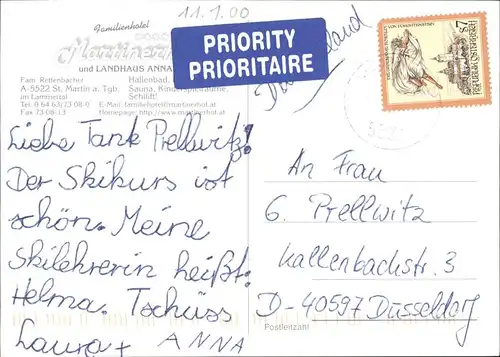 11.1.00
Familienhotel
Martinerhof
und LANDHAUS ANNA
Fam. Rettenbacher
A-5522 St. Martin a. Tgb.
im Lammertal
Tel 0 64 63/73 08-0
Fax 73 08-13
Hallenbad,
Sauna, Kinderspielräume,
Schilift!
E-Mail: familiehotel@martinerhof.at
Homepage: http://www.martinerhof.at
PRIORITY
PRIORITAIRE
Deutschland
Liebe Tank Prellwitz!
Der Skikurs ist
schön. Meine
Skilehrerin heißt:
Helma. Tschüss
Laura + ANNA
An Frau
G. Prellwitz
Kallenbachstr. 3
D-40597 Düsseldorf
Postleitzahl